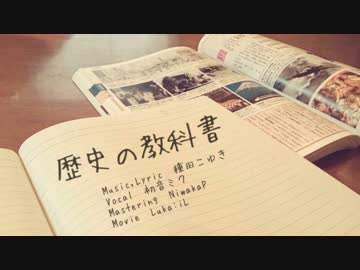 歴史の教科書
Music,Lyric 穂田こゆき
Vocal 初音ミク
Mastering NiwakaP
Movie Luka:iL